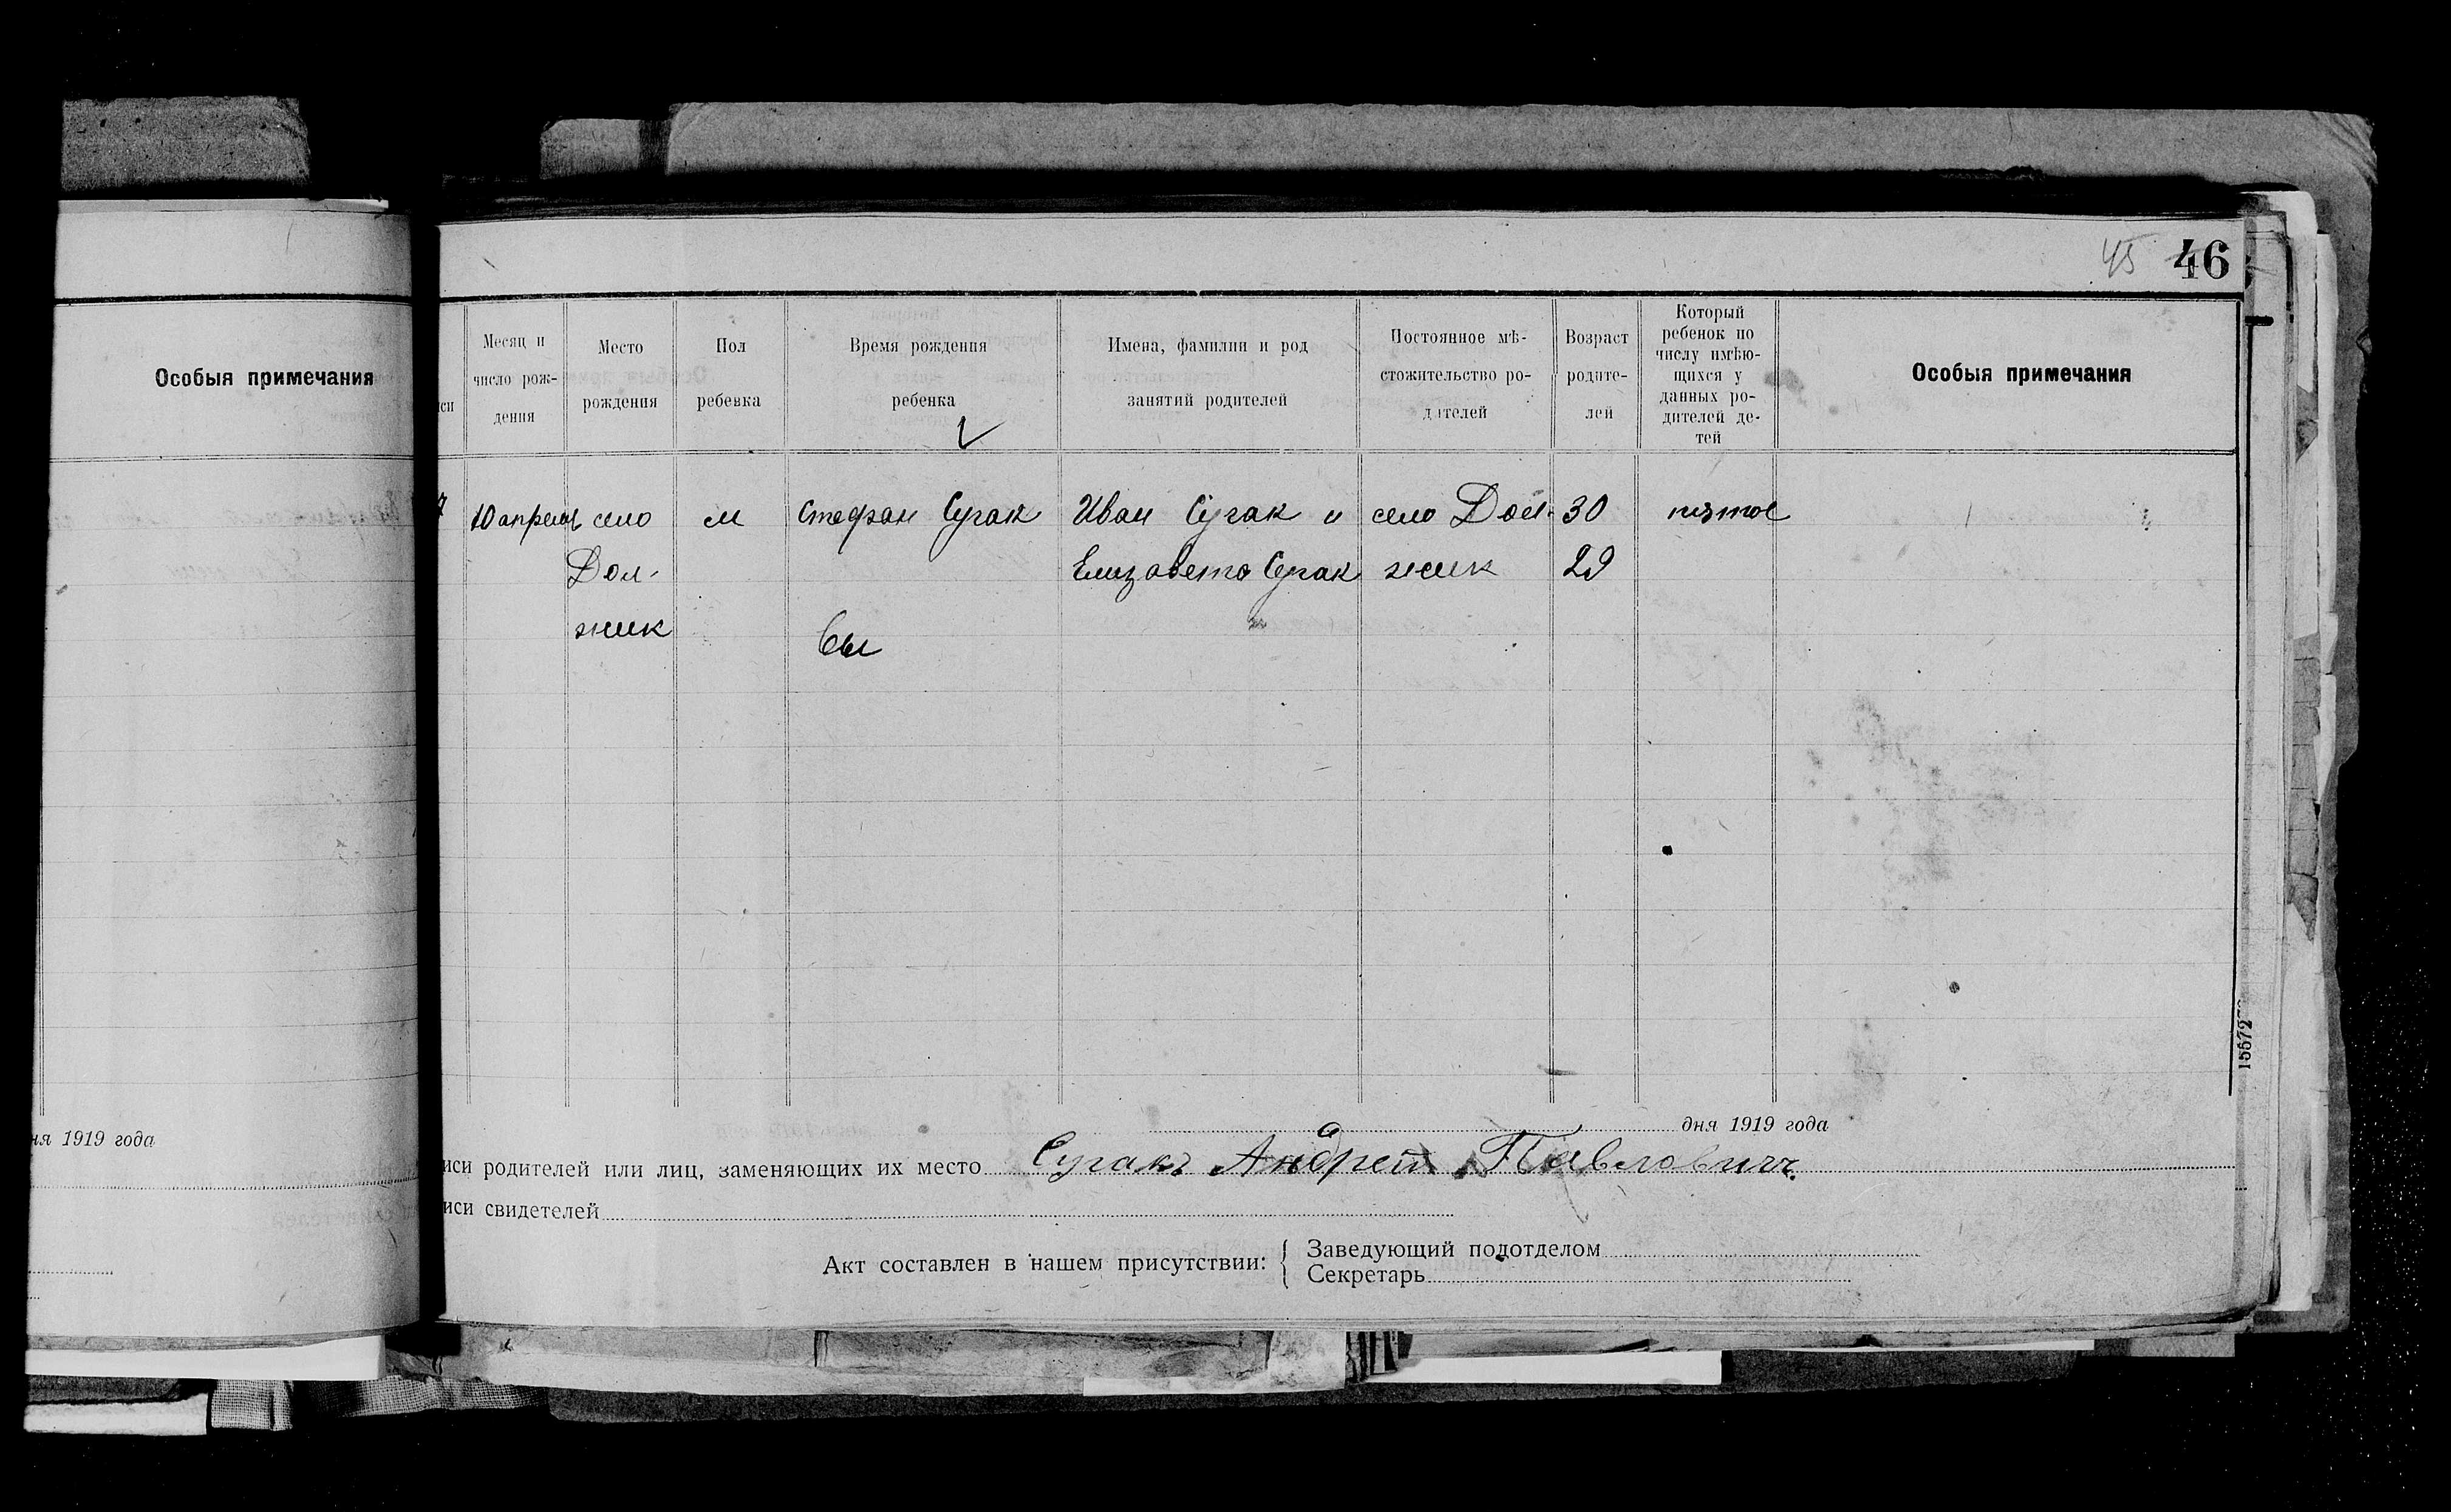 45 46
Особыя примечания
си
Месяц и
число рож-
дения
Место
рождения
Пол
ребевка
Время рождения
ребенка
Имена, фамилии и род
занятий родителей
Постоянное мѣ-
стожительство ро-
дителей
Возраст
родите-
лей
Который
ребенок по
числу имѣю-
щихся у
данных ро-
дителей де-
тей
Особыя примечания
7 10 апреля село м Стефан Сугак Иван Сугак и село Дол- 30 пятое
Дол- Елизавета Сугак жик 29
жик
ня 1919 года
дня 1919 года
иси родителей или лиц, заменяющих их место Сугакъ Андрей Павловичъ.
иси свидетелей
Акт составлен в нашем присутствии:
Заведующий подотделом
Секретарь
15572